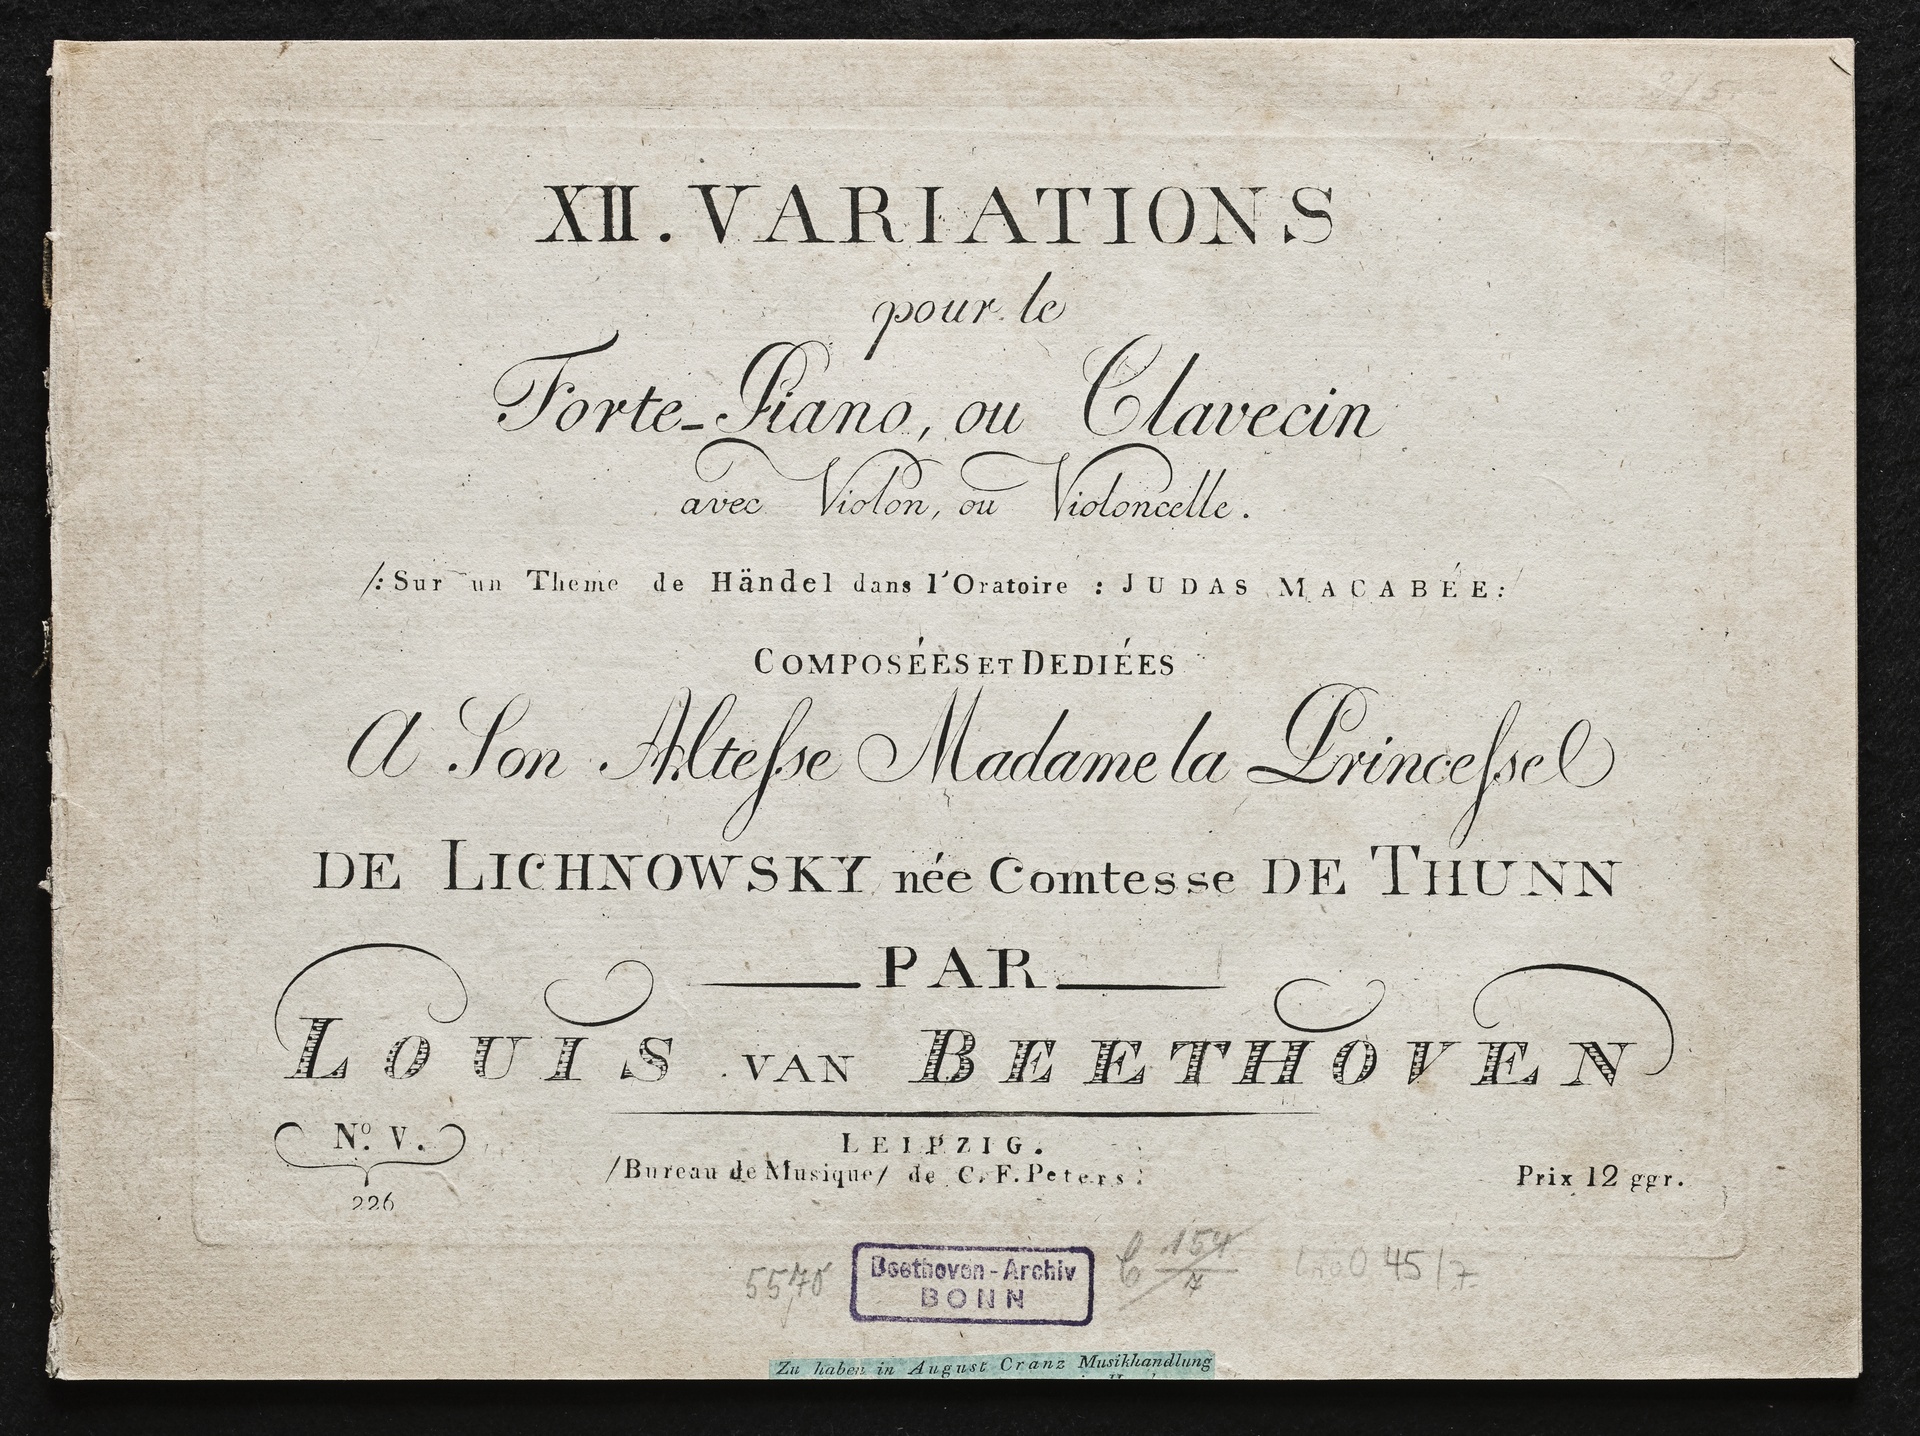 XII. VARIATIONS
pour le
Forte-Piano, ou Clavecin
avec Violon, ou Violoncelle.
/: Sur un Theme de Händel dans l'Oratoire : JUDAS MACABÉE: /
COMPOSÉES ET DEDIÉES
A Son Altesse Madame la Princesse
DE LICHNOWSKY née Comtesse DE THUNN
PAR
LOUIS VAN BEETHOVEN
No. V.
226
LEIPZIG.
/Bureau de Musique/ de C. F. Peters.
Prix 12 ggr.
5570
Beethoven-Archiv
BONN
C 154/7
45/7
Zu haben in August Cranz Musikhandlung